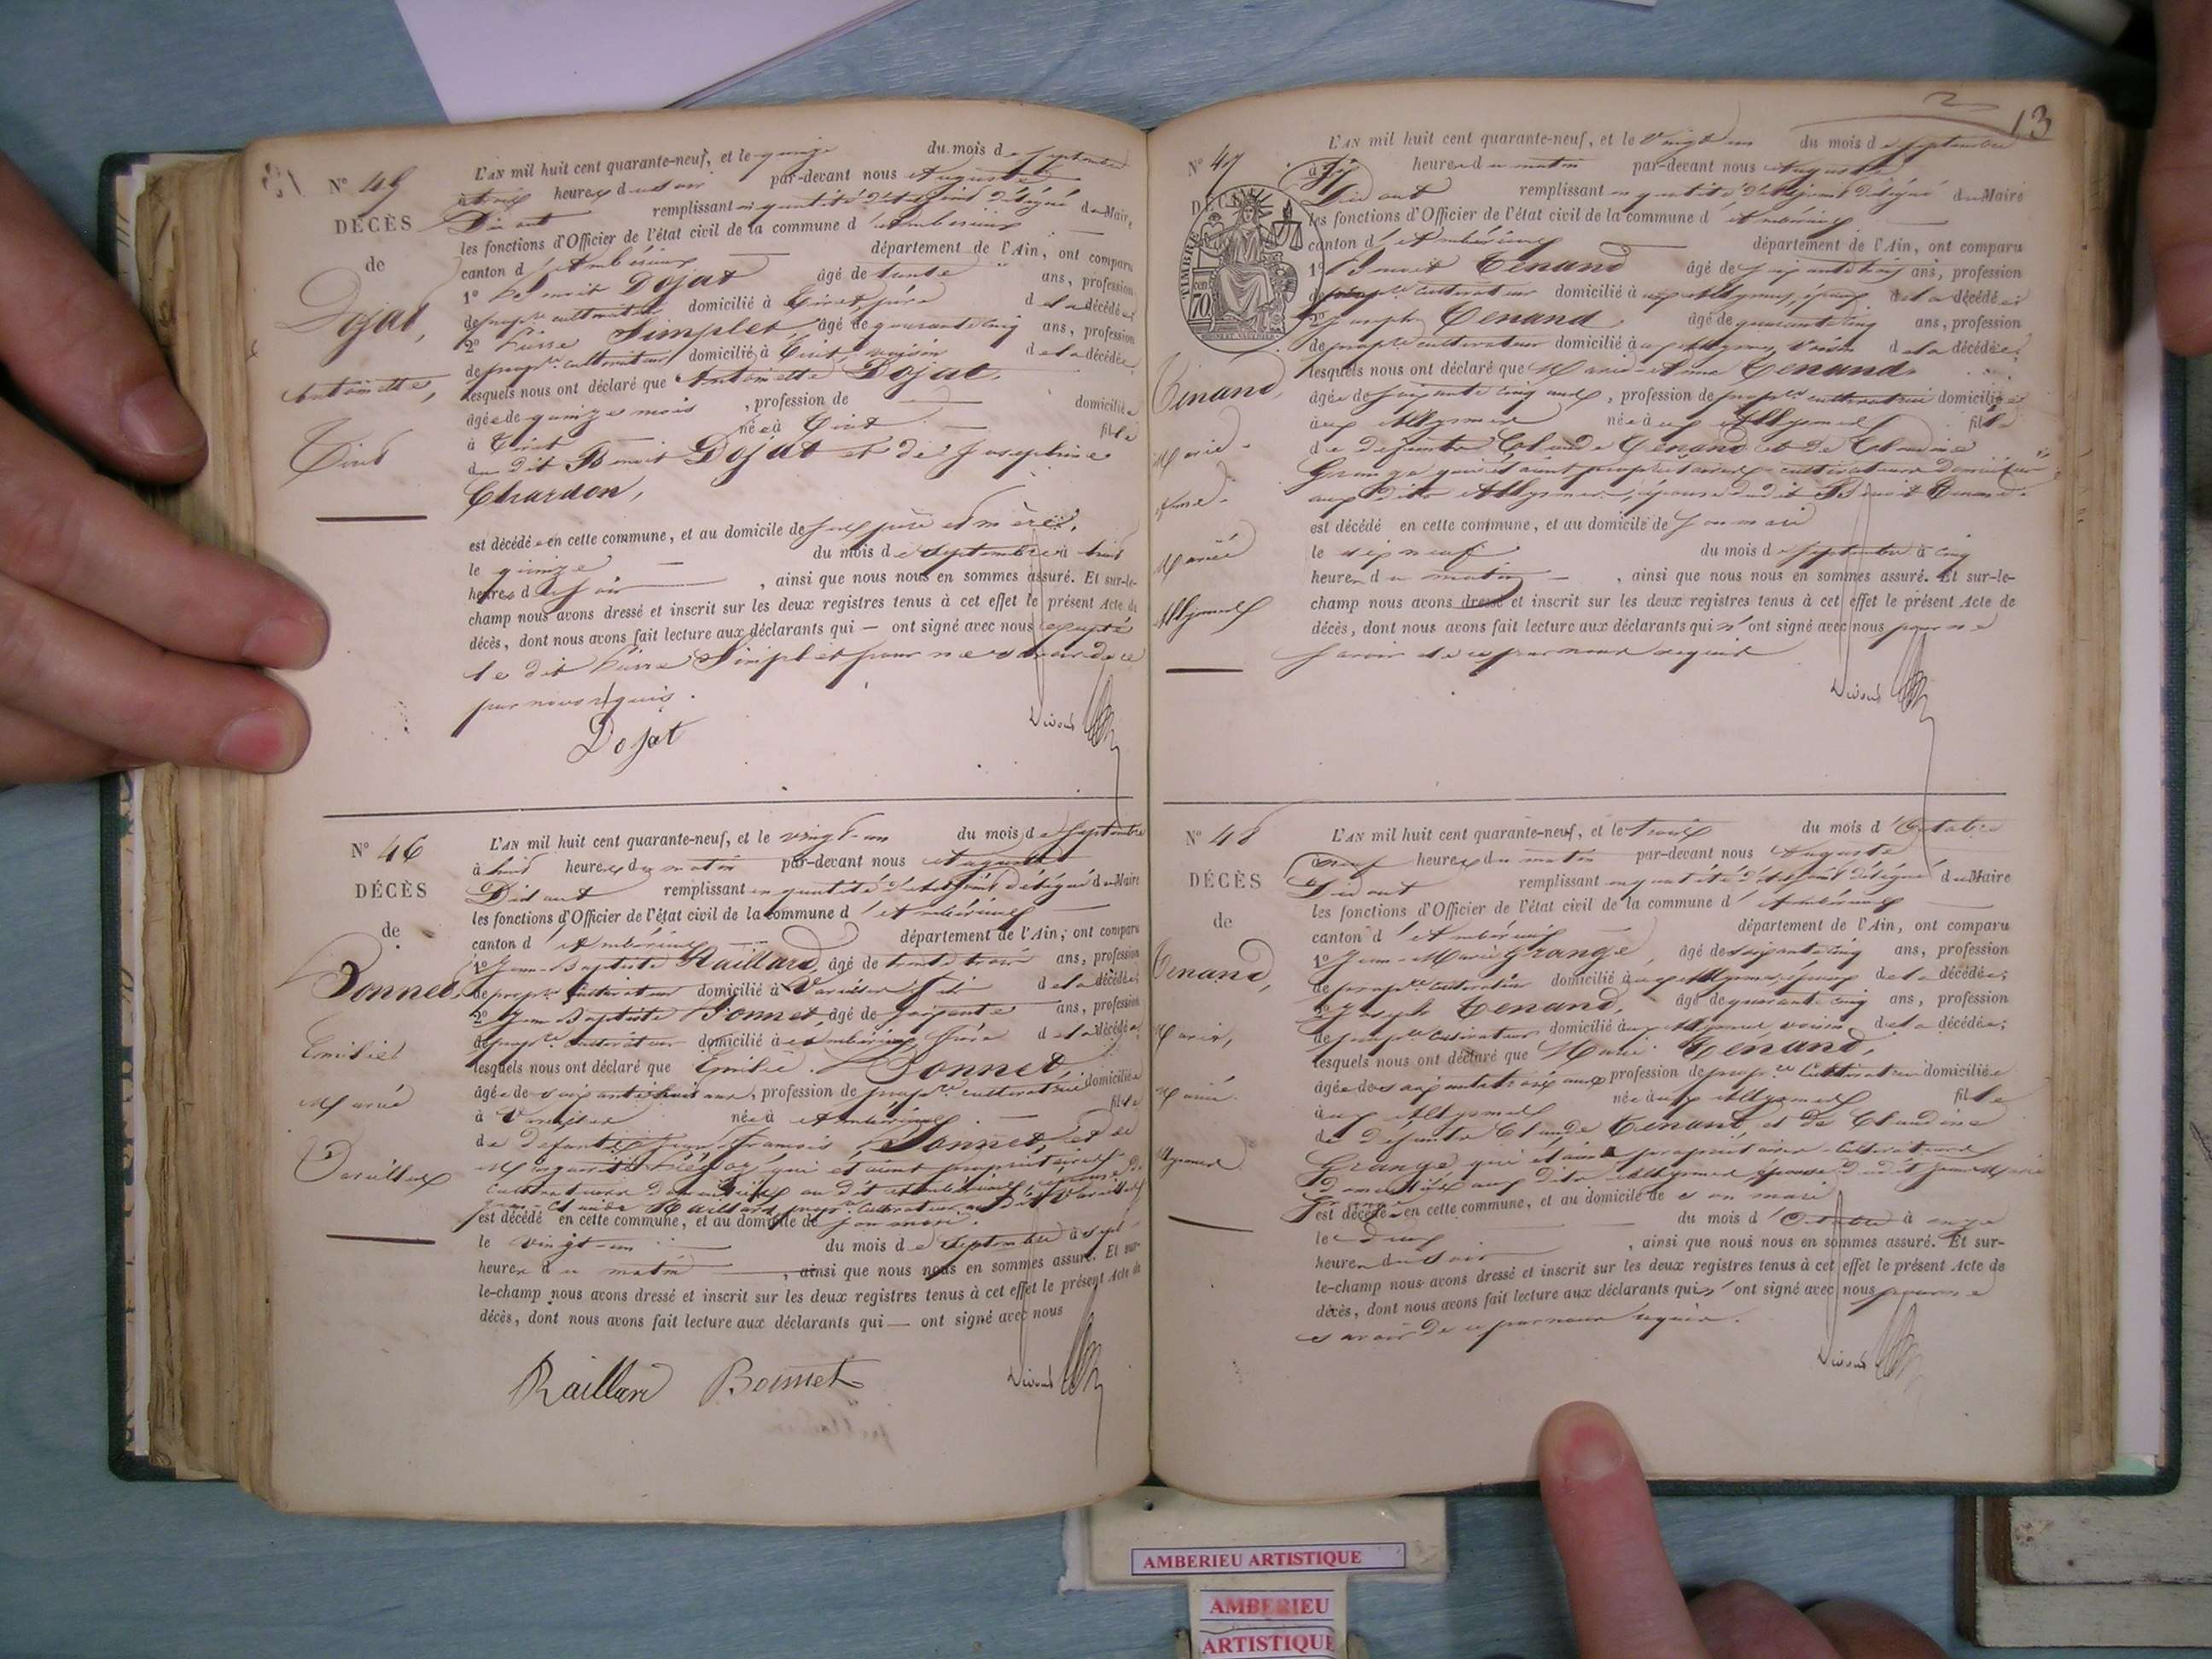 13
N° 45
DÉCÈS
de
Dojat,
Antoinette,
Tiret
L'AN mil huit cent quarante-neuf, et le quinze du mois de septembre
heures du soir par-devant nous Auguste
Divout remplissant en qualité d'adjoint délégué du Maire,
les fonctions d'Officier de l'état civil de la commune d'Ambérieux
canton d'Ambérieux département de l'Ain, ont comparu
1° Benoit Dojat âgé de trente ans, profession
de propre cultivateur domicilié à Tiret père de la décédée
2° Pierre Simplet, âgé de quarante cinq ans, profession
de propre cultivateur, domicilié à Tiret, voisin de la décédée
lesquels nous ont déclaré que Antoinette Dojat,
âgée de quinze mois , profession de domiciliée
à Tiret née à Tiret fille
du dit Benoit Dojat et de Josephine
Chardon,
est décédée en cette commune, et au domicile de ses père et mère,
le quinze du mois de septembre à huit
heures du soir , ainsi que nous nous en sommes assuré. Et sur-le-
champ nous avons dressé et inscrit sur les deux registres tenus à cet effet le présent Acte de
décès, dont nous avons fait lecture aux déclarants qui — ont signé avec nous excepté
le dit Pierre Simplet pour ne savoir de ce
par nous requis.
Dojat
N° 46
DÉCÈS
de
Bonnet,
Emilie
Mariée
Vareilles
L'AN mil huit cent quarante-neuf, et le vingt-un du mois de septembre
à huit heures du matin par-devant nous Auguste
Divout remplissant en qualité d'adjoint délégué du Maire
les fonctions d'Officier de l'état civil de la commune d'Ambérieux
canton d'Ambérieux département de l'Ain, ont comparu
1° Jean-Baptiste Raillard, âgé de trente trois ans, profession
de propre cultivateur domicilié à Vareilles fils de la décédée;
2° Jean Baptiste Bonnet, âgé de soixante ans, profession
de propre cultivateur domicilié à Ambérieux, frère de la décédée,
lesquels nous ont déclaré que Emilie Bonnet,
âgée de soixante huit ans, profession de propre cultivatrice domiciliée
à Vareilles née à Ambérieux fille
de défunts Jean François Bonnet, et de
Marguerite qui étaient propriétaires
cultivateurs domiciliés au dit Ambérieux, épouse de
Jean-Claude Raillard propre cultivateur au dit Vareilles
est décédé en cette commune, et au domicile de son mari.
le vingt-un du mois de septembre à sept
heures du matin , ainsi que nous nous en sommes assuré. Et sur-
le-champ nous avons dressé et inscrit sur les deux registres tenus à cet effet le présent Acte de
décès, dont nous avons fait lecture aux déclarants qui — ont signé avec nous
Raillard Bonnet
N° 47
DÉC
TIMBRE
70
Tenand,
Marie-
Anne-
Mariée
Allymes
L'AN mil huit cent quarante-neuf, et le vingt un du mois de septembre
à dix heures du matin par-devant nous Auguste
Divout remplissant en qualité d'adjoint délégué du Maire
les fonctions d'Officier de l'état civil de la commune d'Ambérieux
canton d'Ambérieux département de l'Ain, ont comparu
1° Benoit Tenand âgé de ans, profession
de propre cultivateur domicilié à aux Allymes, époux de la décédée;
2° Joseph Tenand, âgé de quarante cinq ans, profession
de propre cultivateur domicilié à aux Allymes, voisin de la décédée,
lesquels nous ont déclaré que Marie-Anne Tenand,
âgée de soixante cinq ans, profession de propre cultivatrice domiciliée
aux Allymes née à aux Allymes fille
de défunts Claude Tenand et de Claudine
Grange qui étaient propriétaires-cultivateurs domiciliés
aux dits Allymes, épouse du dit Benoit Tenand.
est décédé en cette commune, et au domicile de son mari
le dix neuf du mois de septembre à cinq
heures du matin , ainsi que nous nous en sommes assuré. Et sur-le-
champ nous avons dressé et inscrit sur les deux registres tenus à cet effet le présent Acte de
décès, dont nous avons fait lecture aux déclarants qui n'ont signé avec nous pour ne
savoir de ce par nous requis
N° 48
DÉCÈS
de
Tenand,
Marie,
Mariée
Allymes
L'AN mil huit cent quarante-neuf, et le trois du mois d'Octobre
à neuf heures du matin par-devant nous Auguste
Divout remplissant en qualité d'adjoint délégué du Maire
les fonctions d'Officier de l'état civil de la commune d'Ambérieux
canton d'Ambérieux département de l'Ain, ont comparu
1° Jean-Marie Grange, âgé de soixante cinq ans, profession
de propre cultivateur domicilié à aux Allymes, époux de la décédée;
2° Joseph Tenand, âgé de quarante cinq ans, profession
de propre cultivateur domicilié à aux Allymes, voisin de la décédée;
lesquels nous ont déclaré que Marie Tenand,
âgée de soixante trois ans profession de propre cultivatrice domiciliée
à aux Allymes née à aux Allymes fille
de défunts Claude Tenand et de Claudine
Grange qui étaient propriétaires-cultivateurs
domiciliés aux dits Allymes, épouse du dit Jean Marie
Grange
est décédée en cette commune, et au domicile de son mari
le deux du mois d'Octobre à onze
heures du soir , ainsi que nous nous en sommes assuré. Et sur-
le-champ nous avons dressé et inscrit sur les deux registres tenus à cet effet le présent Acte de
décès, dont nous avons fait lecture aux déclarants qui n'ont signé avec nous pour ne
savoir de ce par nous requis.
AMBERIEU ARTISTIQUE
AMBERIEU
ARTISTIQUE